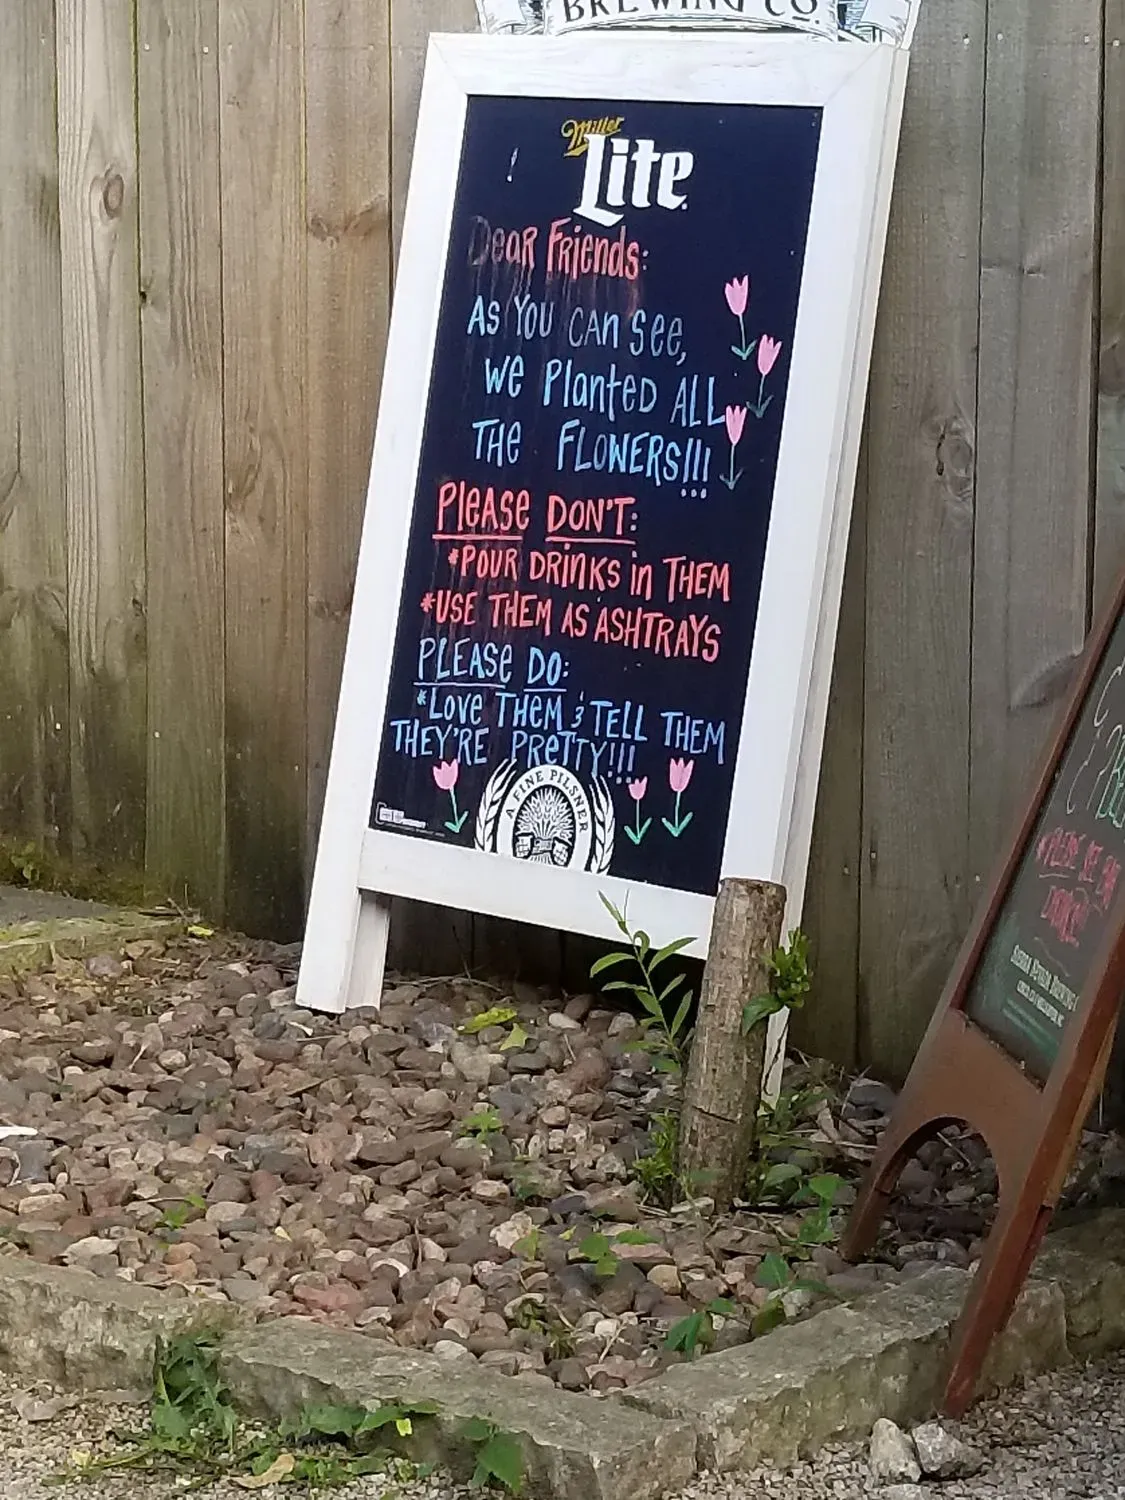 BREWING CO.
Miller
Lite
Dear Friends:
As You can see,
we Planted ALL
THe FLOWERS!!!
PleASe DON'T:
*POUR DRinKS in THEM
*USE THEM AS ASHTRAYS
PLEASe DO:
*Love THem & TELL THEM
THEY'RE PReTTY!!!
A FINE PILSNER
*PLEASE SEE BAR
SIERRA NEVADA BREWING C